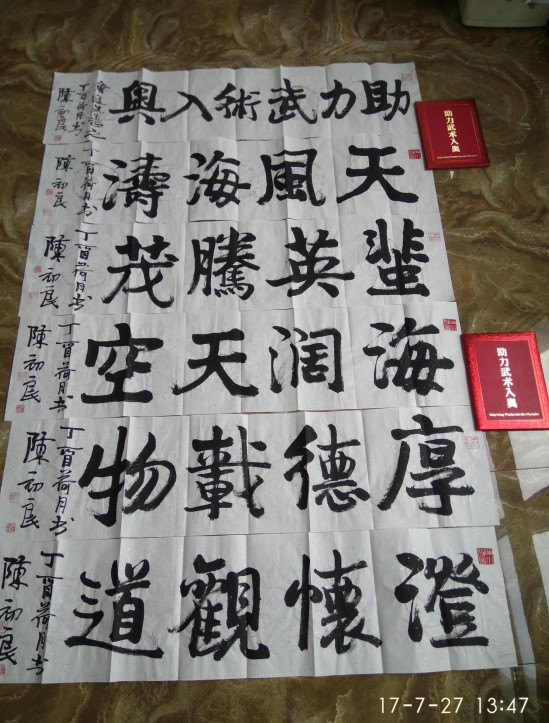 助力武術入奥
丁酉荷月书
陳初良
天風海濤
丁酉荷月书
陳初良
蜚英騰茂
丁酉荷月书
陳初良
海阔天空
丁酉荷月书
陳初良
厚德載物
丁酉荷月书
陳初良
澄懷觀道
丁酉荷月书
陳初良
助力武术入奥
助力武术入奥
17-7-27 13:47